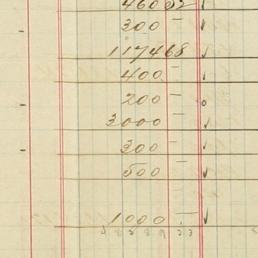 460 52
300 —
1174 68
400 —
200 —
3000 —
300 —
500 —
1000 —